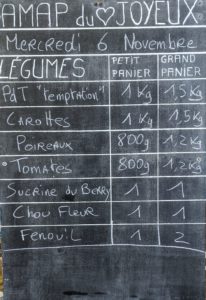 AMAP du ♡ JOYEUX
Mercredi 6 Novembre
LÉGUMES PETIT PANIER GRAND PANIER
PdT "temptation" 1 Kg 1,5 Kg
CAROTTES 1 Kg 1,5 Kg
POIREAUX 800g 1,2 Kg
TOMATES 800g 1,2 Kg
SUCRINE DU BERRY 1 1
CHOU FLEUR 1 1
FENOUIL 1 2